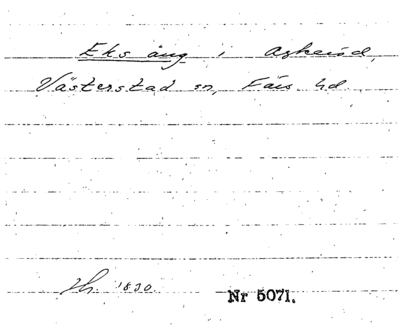 Eks äng i Askeröd,
Västerstad sn, Färs hd.
Hr. 1830. Nr 5071.